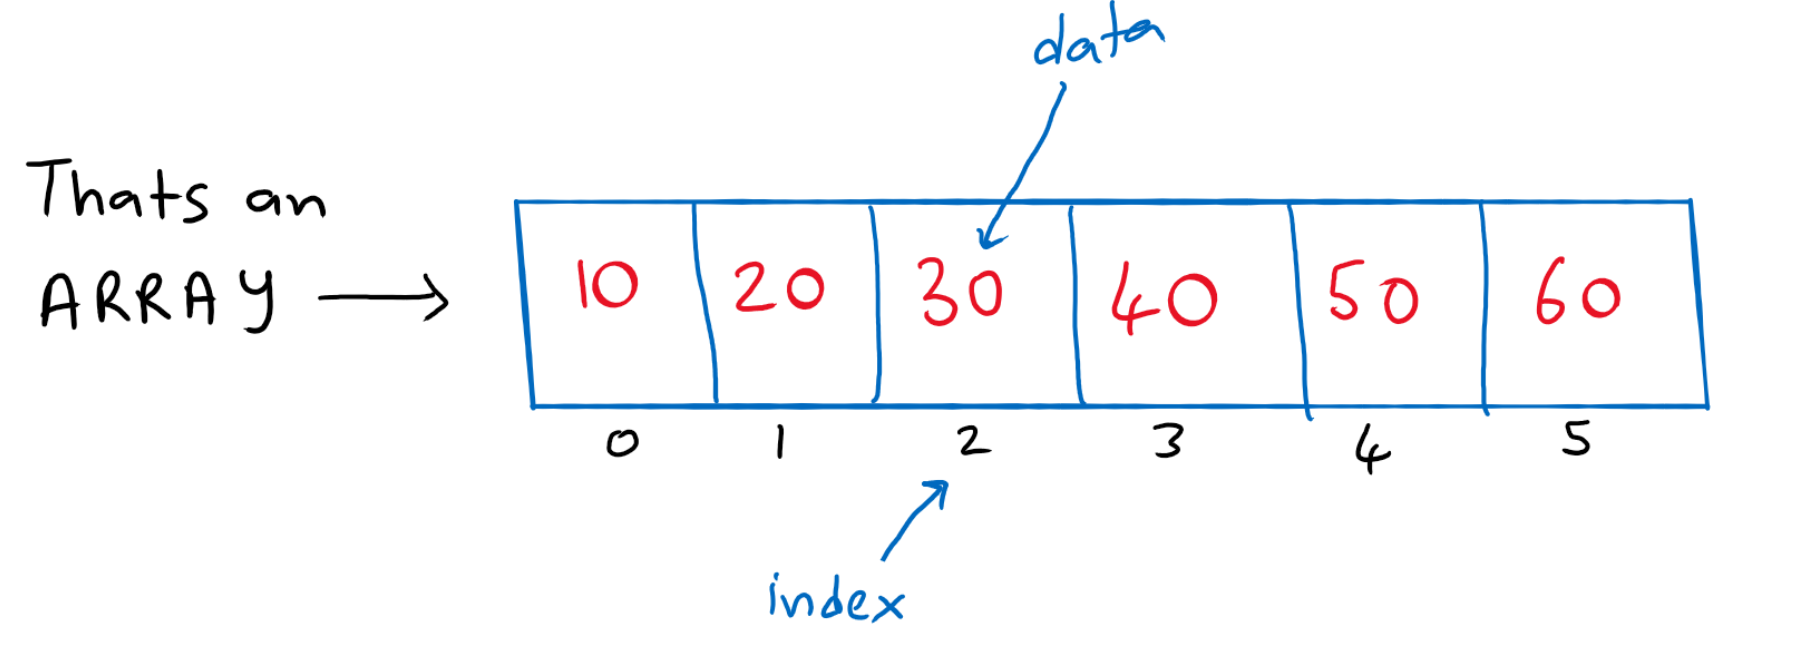 data
Thats an
ARRAY
10 20 30 40 50 60
0 1 2 3 4 5
index